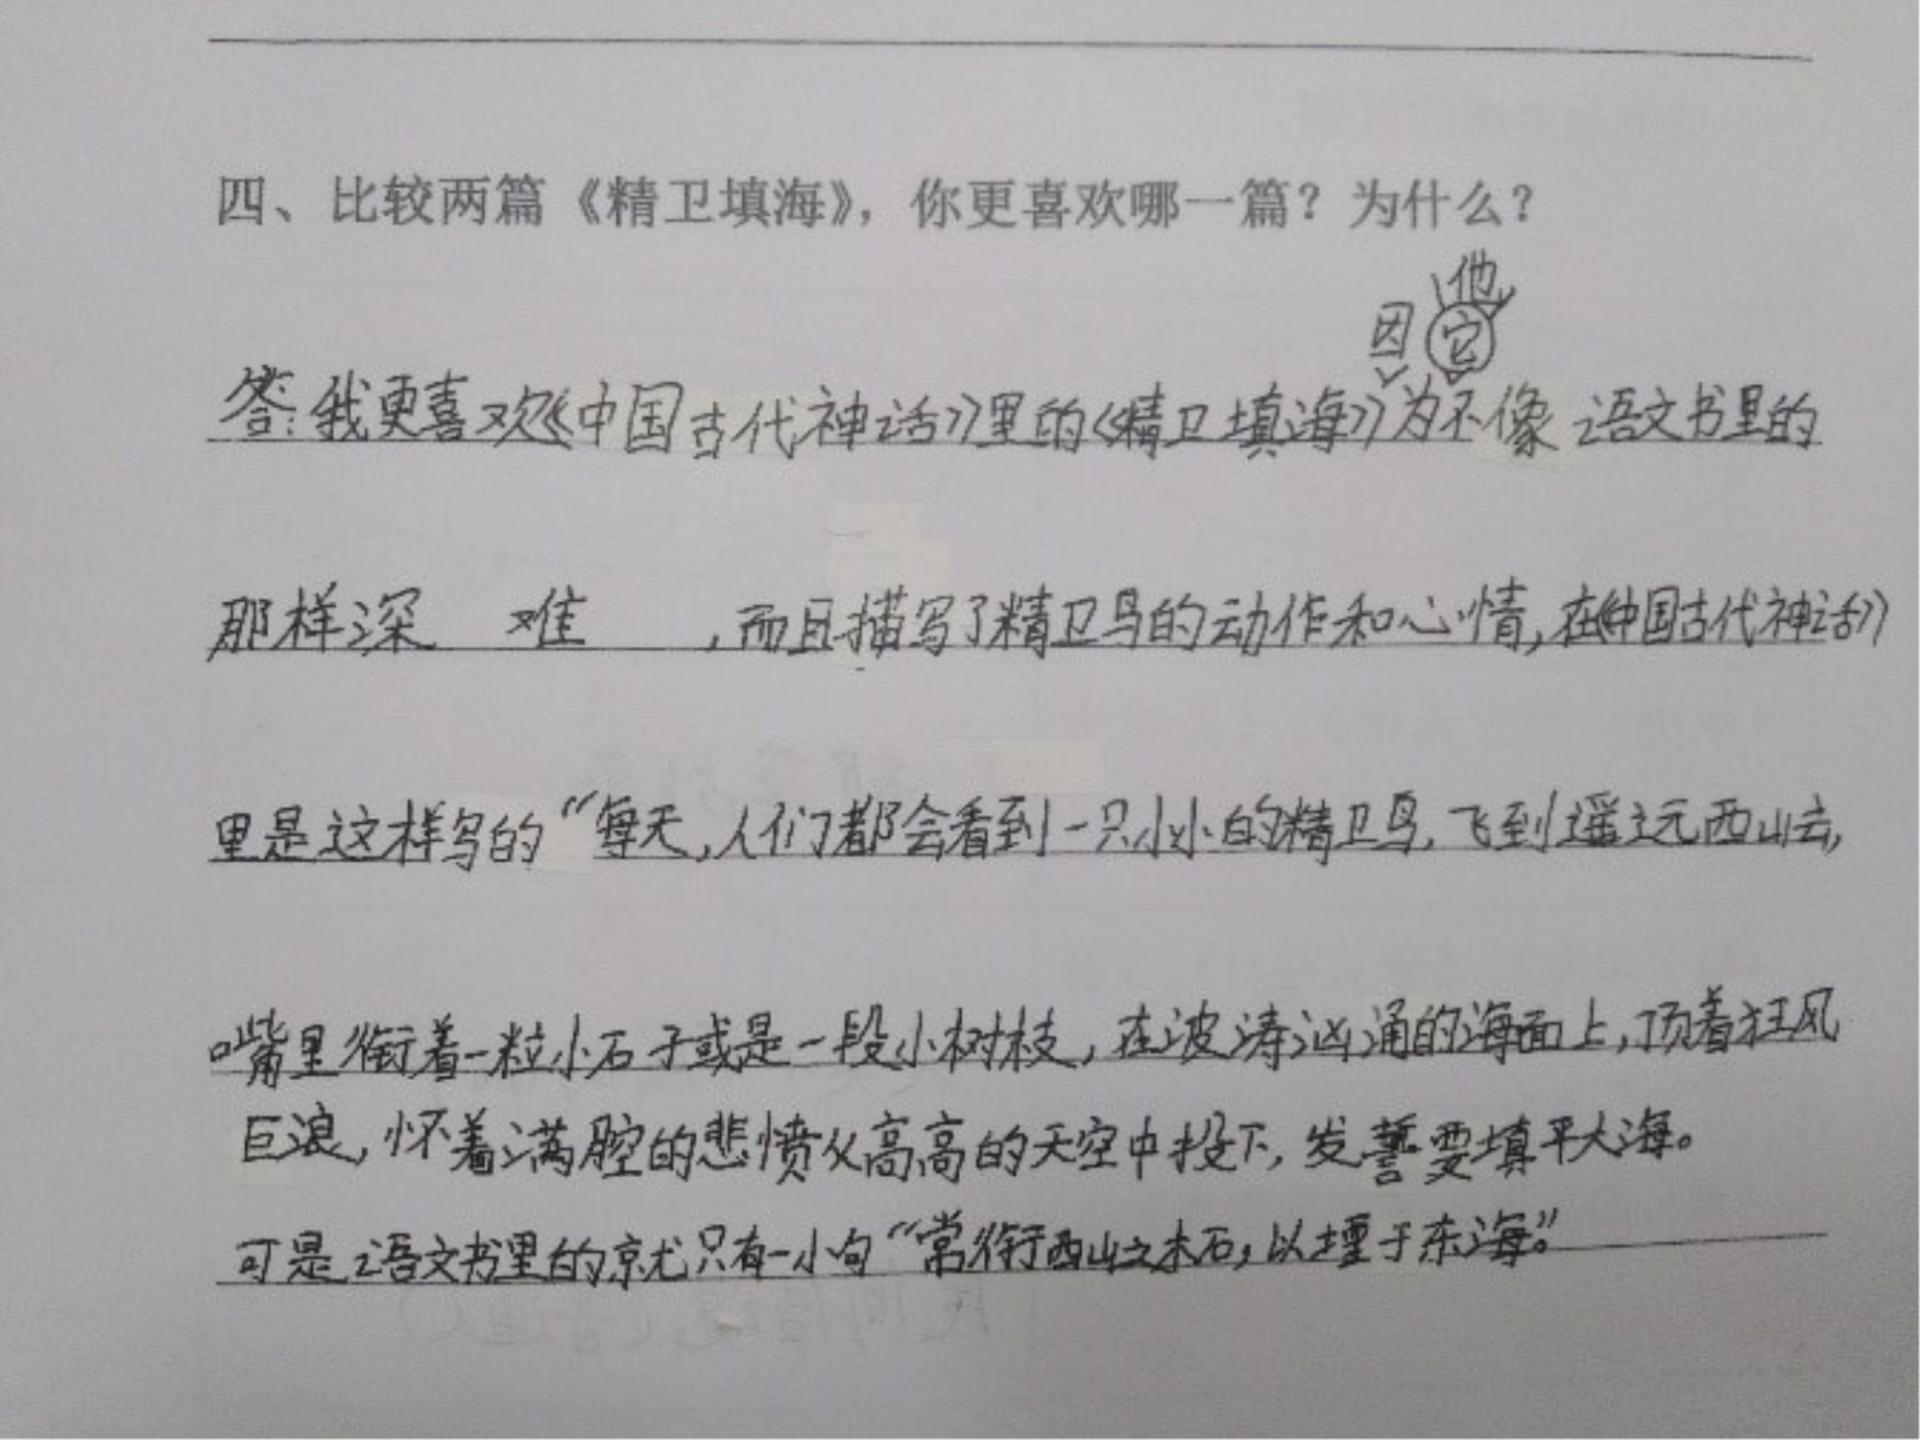 四、比较两篇《精卫填海》，你更喜欢哪一篇？为什么？
他
因 它
答：我更喜欢《中国古代神话》里的《精卫填海》为不像语文书里的
那样深 难 ，而且描写了精卫鸟的动作和心情，在《中国古代神话》
里是这样写的“每天，人们都会看到一只小小的精卫鸟，飞到遥远西山去，
嘴里衔着一粒小石子或是一段小树枝，在波涛汹涌的海面上，顶着狂风
巨浪，怀着满腔的悲愤从高高的天空中投下，发誓要填平大海。
可是语文书里的就只有一小句“常衔西山之木石，以堙于东海”。